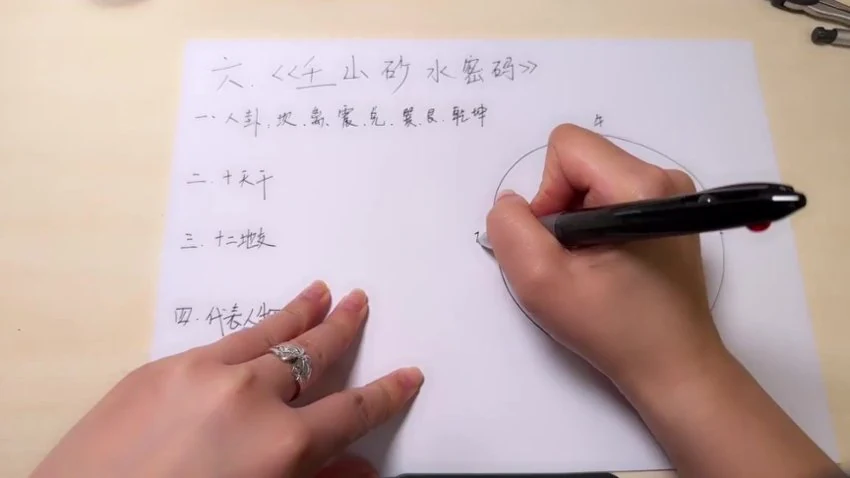 六.《壬山砂水密码》
一.八卦.坎.离.震.兑.巽.艮.乾坤
午
二.十天干
三.十二地支
四.代表人物